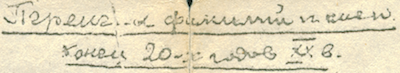 Перечень фамилий и имен.
Конец 20-х годов XX в.